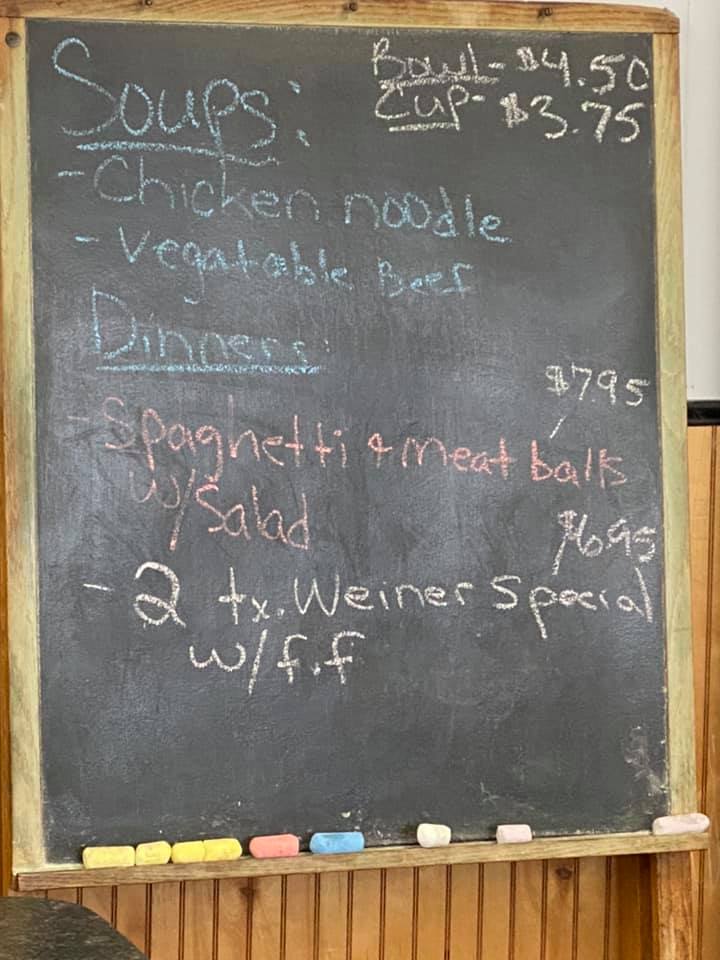 Soups:
Bowl - $4.50
Cup - $3.75
- Chicken noodle
- Vegatable Beef
Dinners:
$795
- Spaghetti & meat balls
w/Salad
$6.95
- 2 tx. Weiner Special
w/f.f